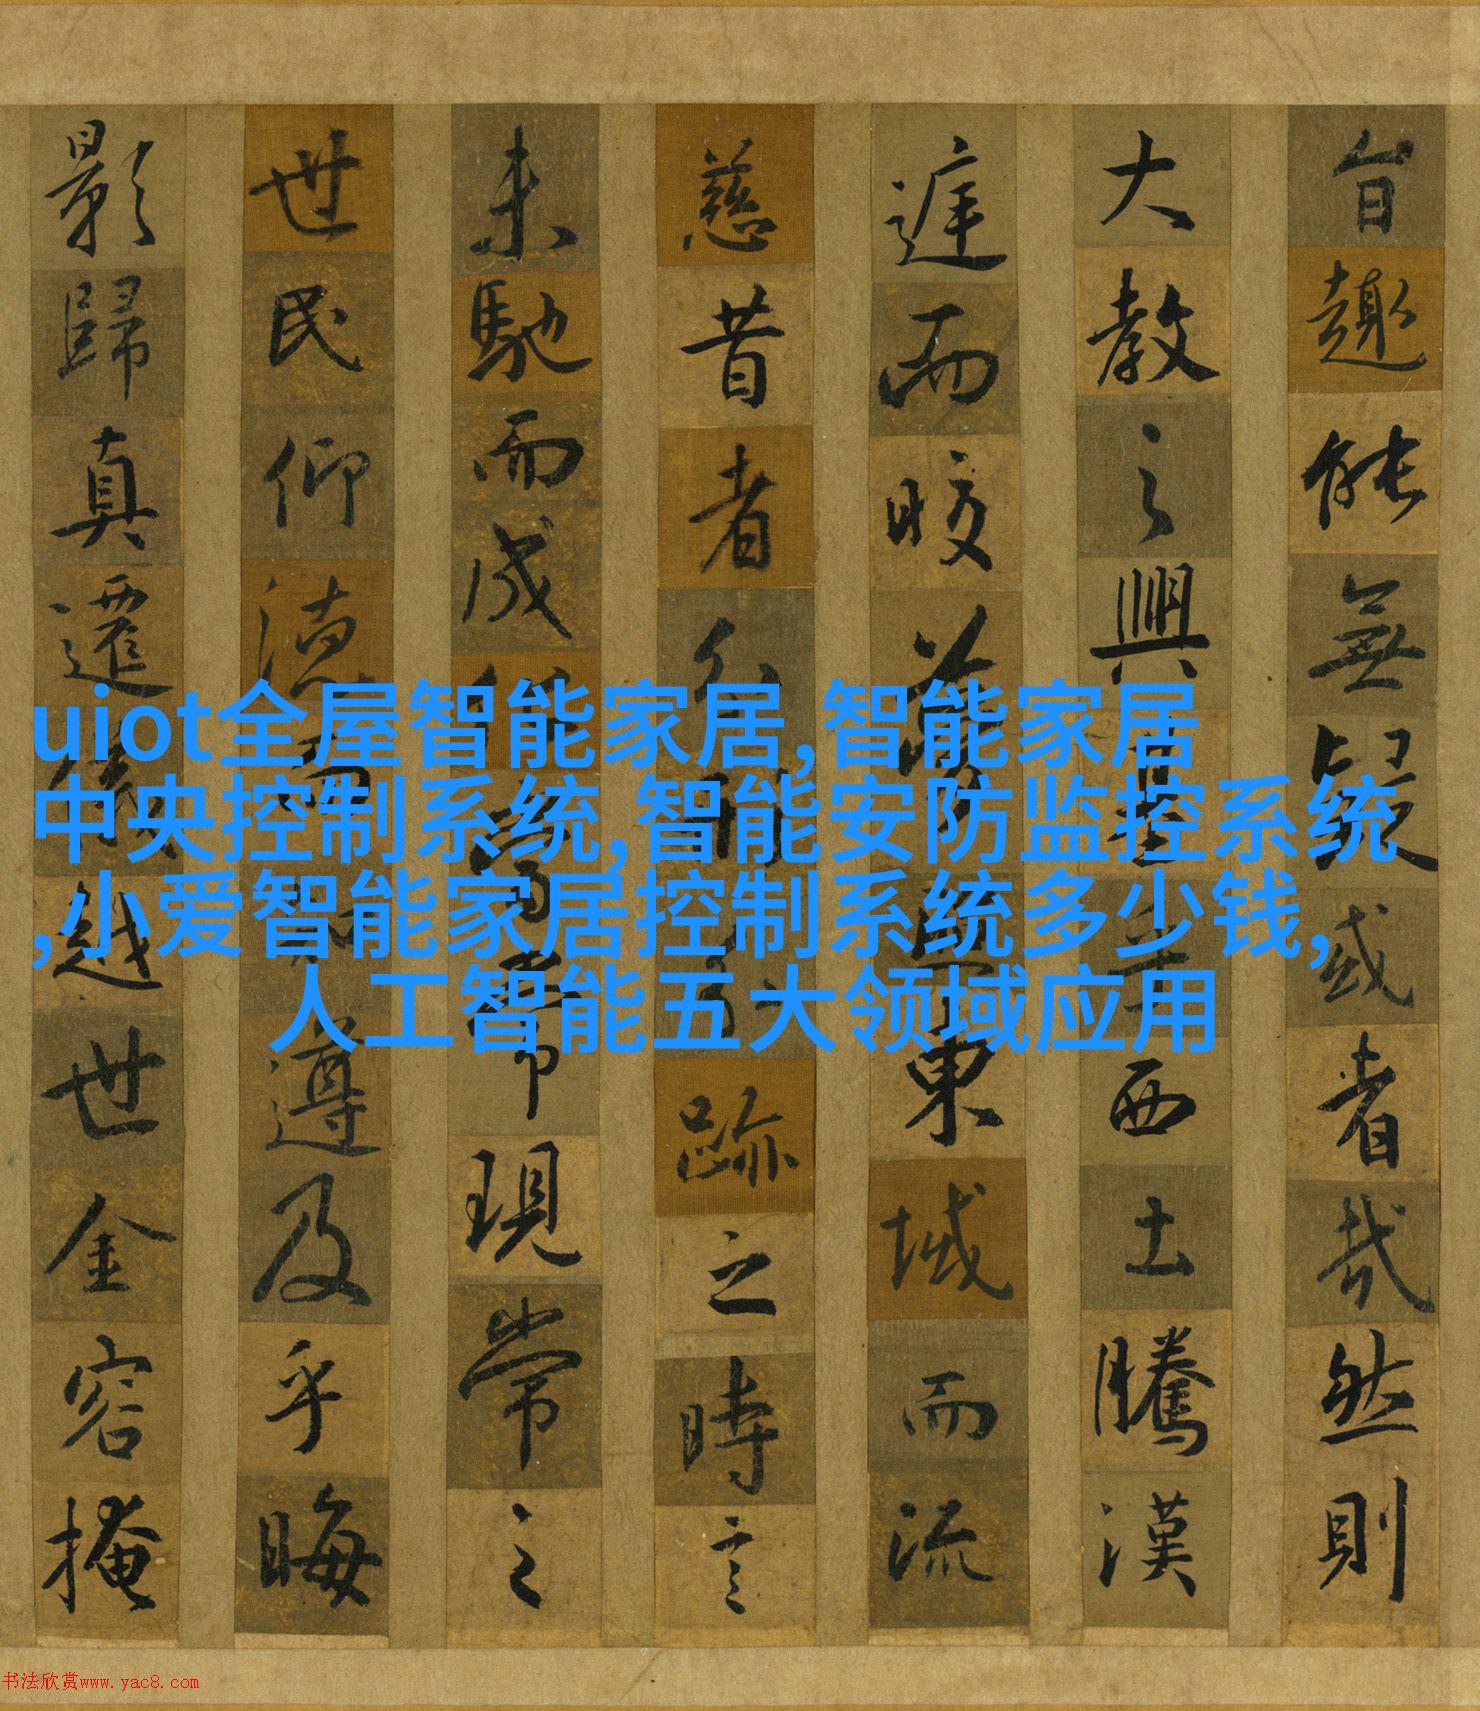 旨趣能無疑或者哉然則
大教之興基乎西土騰漢
庭而皎夢照東域而流
慈昔者分形分跡之時言
未馳而成化當常現常之
世民仰德而知遵及乎晦
影歸真遷儀越世金容掩
uiot全屋智能家居,智能家居
中央控制系统,智能安防监控系统
,小爱智能家居控制系统多少钱,
人工智能五大领域应用
书法欣赏www.yac8.com